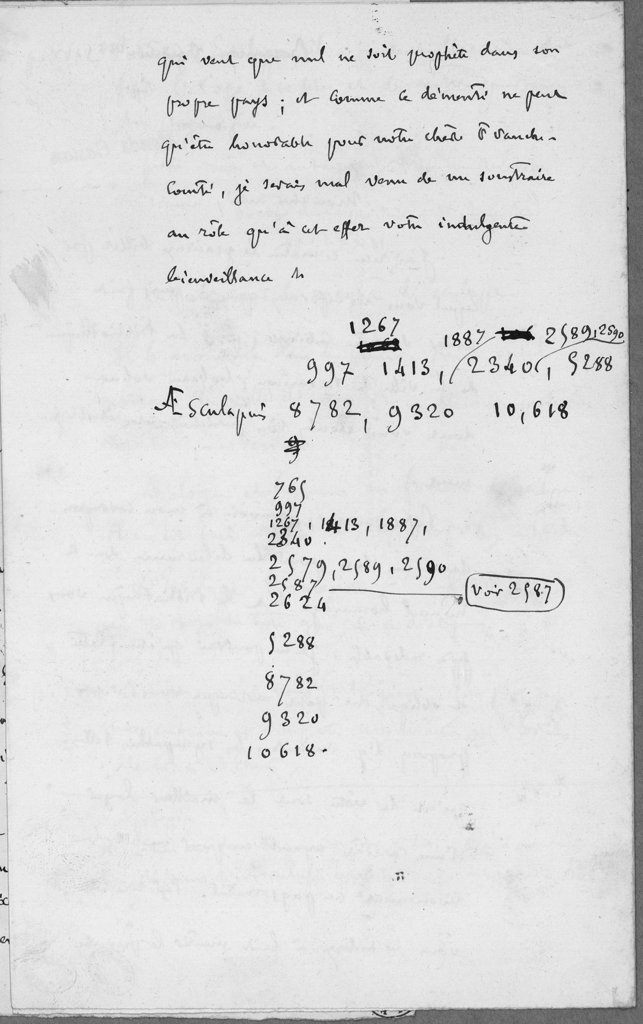 qui veut que nul ne soit prophète dans son
propre pays ; et comme ce démenti ne peut
qu'être honorable pour notre chère Franche-
Comté, je serais mal venu de me soustraire
au rôle qu'a cet effet votre indulgente
bienveillance m
1267
1887 2589, 2590
997 1413, 2340, 5288
Æsculapius 8782, 9320 10,618
765
997
1267, 1413, 1887,
2340.
2579, 2589, 2590
2587 voir 2587
2624
5288
8782
9320
10618.